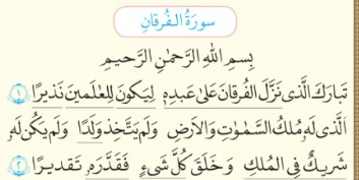 سورَةُ الـفُرقانِ
بِسمِ اللهِ الرَّحمٰنِ الرَّحيمِ
تَبارَكَ الَّذی نَزَّلَ الفُرقانَ عَلیٰ عَبدِهٖ لِيَكونَ لِلعٰلَمينَ نَذيرًا ١
اَلَّذی لَهٗ مُلكُ السَّمٰوٰتِ وَالاَرضِ وَلَم يَتَّخِذ وَلَدًا وَلَم يَكُن لَهٗ
شَريكٌ فِی المُلكِ وَ خَلَقَ كُلَّ شَیءٍ فَقَدَّرَهٗ تَقديـرًا ٢